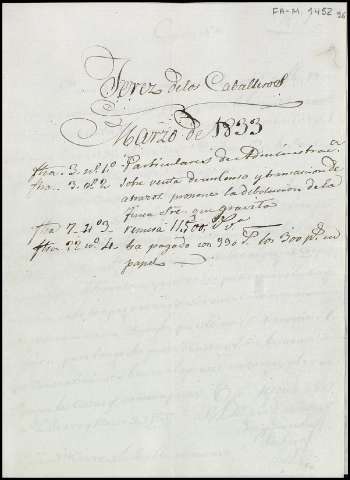 FA-M. 1452
Jerez de los Caballeros
Marzo de 1833
fha. 3. nº. 1º. Particulares de Administrac.
fha. 3. nº. 2. Sobre venta de un censo y
atrasos propone la de la
finca Sre. que gravita
fha 7. nº 3 remesa 11.500.
fha 22 nº. 4. ha pagado con 390 los 300 en
papel